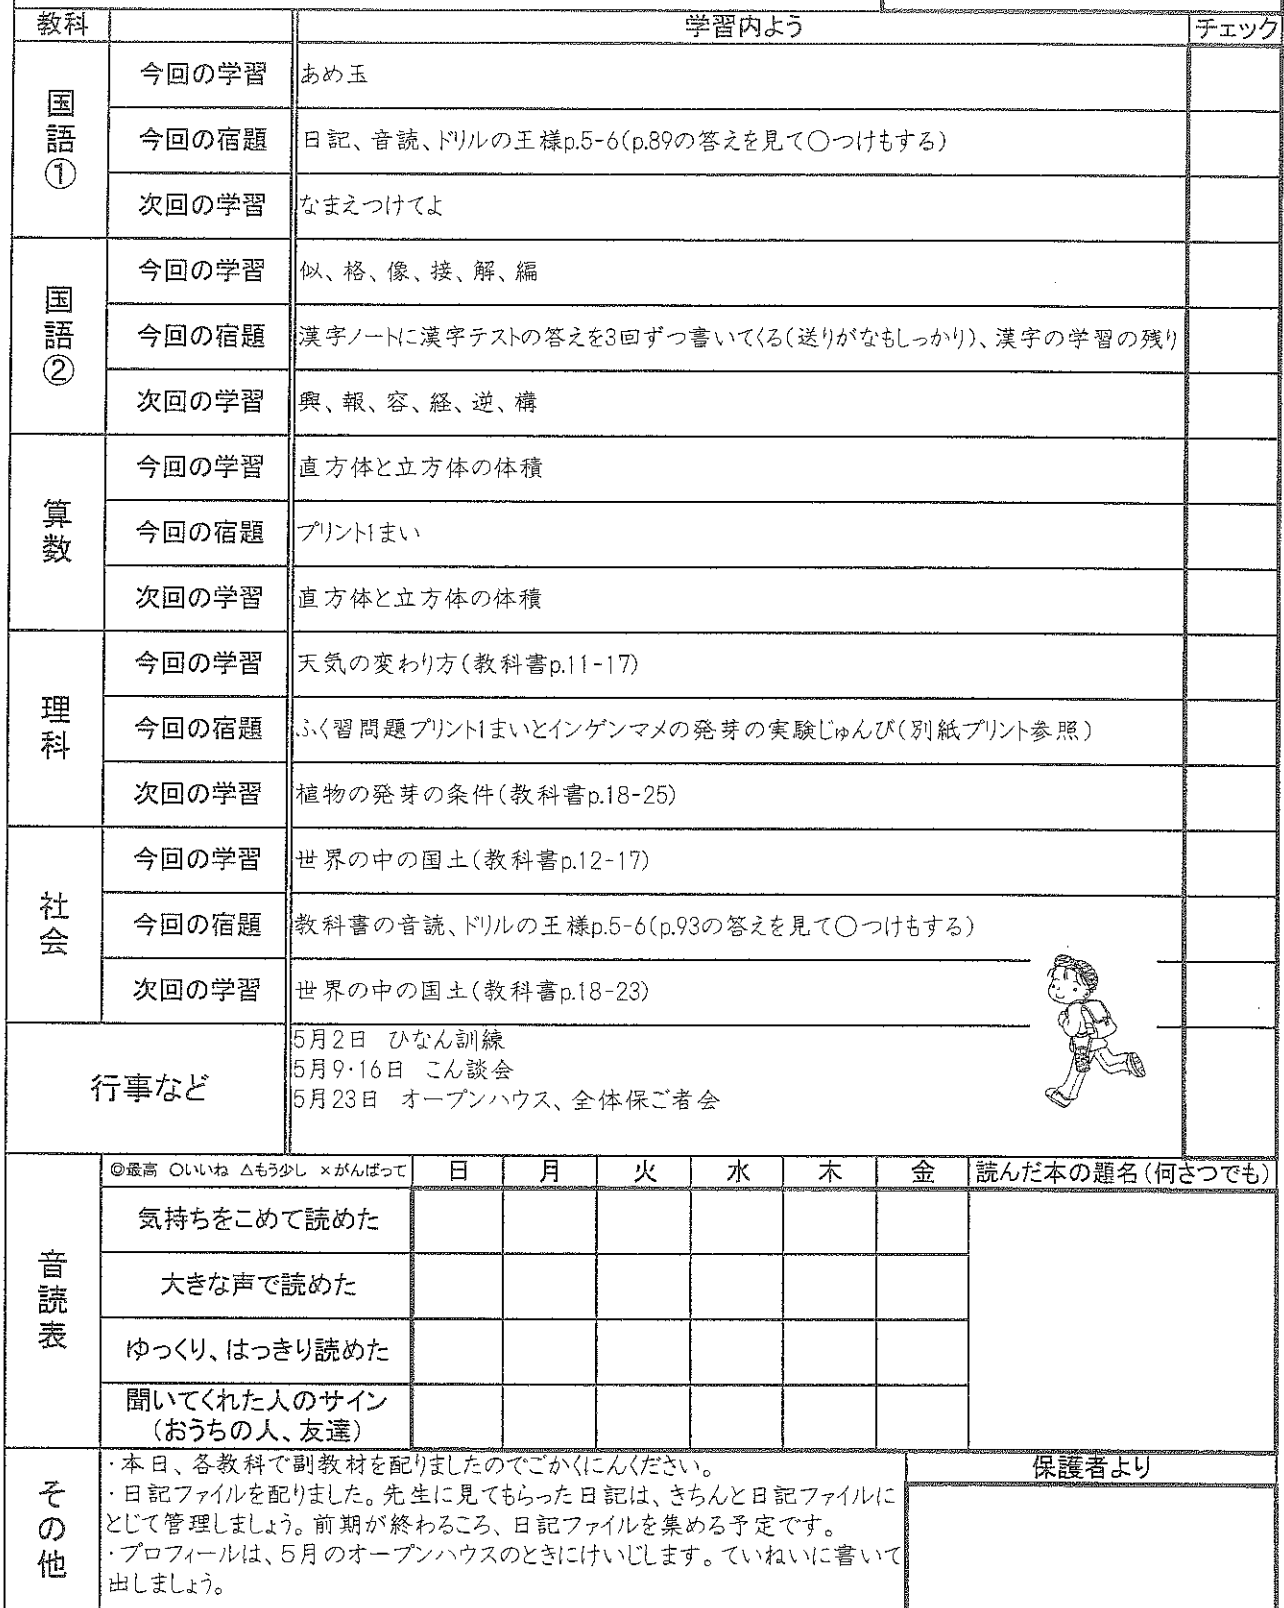 教科 学習内よう チェック
国語①
今回の学習 あめ玉
今回の宿題 日記、音読、ドリルの王様p.5-6(p.89の答えを見て○つけもする)
次回の学習 なまえつけてよ
国語②
今回の学習 似、格、像、接、解、編
今回の宿題 漢字ノートに漢字テストの答えを3回ずつ書いてくる(送りがなもしっかり)、漢字の学習の残り
次回の学習 興、報、容、経、逆、構
算数
今回の学習 直方体と立方体の体積
今回の宿題 プリント1まい
次回の学習 直方体と立方体の体積
理科
今回の学習 天気の変わり方(教科書p.11-17)
今回の宿題 ふく習問題プリント1まいとインゲンマメの発芽の実験じゅんび(別紙プリント参照)
次回の学習 植物の発芽の条件(教科書p.18-25)
社会
今回の学習 世界の中の国土(教科書p.12-17)
今回の宿題 教科書の音読、ドリルの王様p.5-6(p.93の答えを見て○つけもする)
次回の学習 世界の中の国土(教科書p.18-23)
行事など
5月2日 ひなん訓練
5月9・16日 こん談会
5月23日 オープンハウス、全体保ご者会
音読表
◎最高 ○いいね △もう少し ×がんばって 日 月 火 水 木 金 読んだ本の題名(何さつでも)
気持ちをこめて読めた
大きな声で読めた
ゆっくり、はっきり読めた
聞いてくれた人のサイン
(おうちの人、友達)
その他
・本日、各教科で副教材を配りましたのでごかくにんください。
・日記ファイルを配りました。先生に見てもらった日記は、きちんと日記ファイルに
とじて管理しましょう。前期が終わるころ、日記ファイルを集める予定です。
・プロフィールは、5月のオープンハウスのときにけいじします。ていねいに書いて
出しましょう。
保護者より